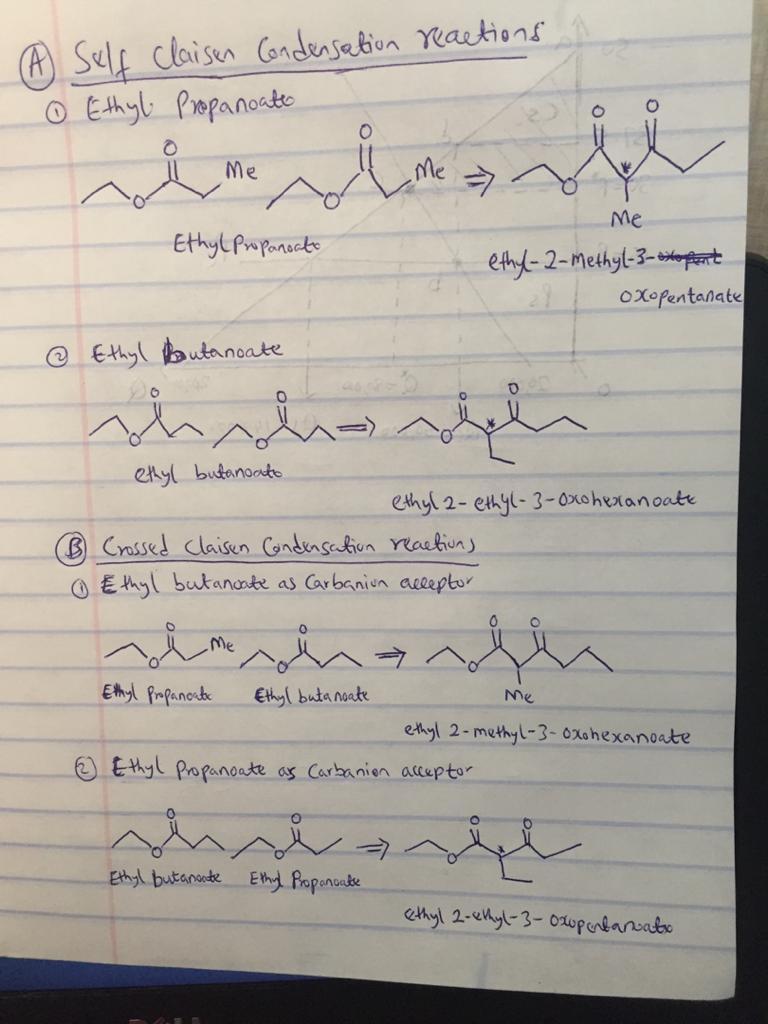 A Self Claisen Condensation reactions
1 Ethyl Propanoate
O O O O
Me Me ⇒ Me
O O O
Ethyl Propanoate
ethyl-2-methyl-3-
oxopentanate
2 Ethyl butanoate
O O O O
O O ⇒ O
ethyl butanoate
ethyl 2-ethyl-3-oxohexanoate
B Crossed Claisen Condensation reactions
1 Ethyl butanoate as Carbanion acceptor
O Me O ⇒ O O
O O O Me
Ethyl Propanoate Ethyl butanoate
ethyl 2-methyl-3-oxohexanoate
2 Ethyl Propanoate as Carbanion acceptor
O O ⇒ O O
O O O
Ethyl butanoate Ethyl Propanoate
ethyl 2-ethyl-3-oxopentanoate